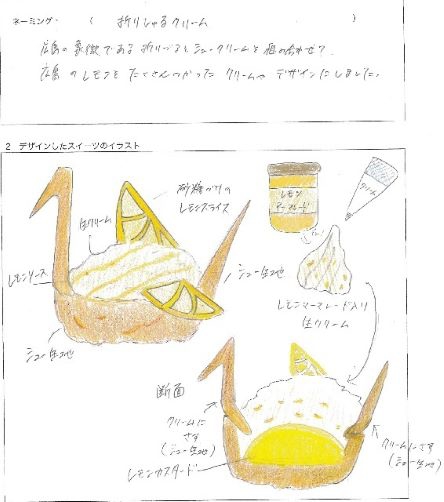 ネーミング ( 折りしゅるクリーム )
広島の象徴である折りづると、シュークリームを組み合わせて
広島のレモンをたくさんつかったクリームやデザインにしました。
2 デザインしたスイーツのイラスト
砂糖がけの
レモンスライス
生クリーム
レモンソース
シュー生地
シュー生地
レモン
マーマレード
クリーム
レモンマーマレード入り
生クリーム
断面
クリームに
さす
(シュー生地)
クリームにさす
(シュー生地)
レモンカスタード